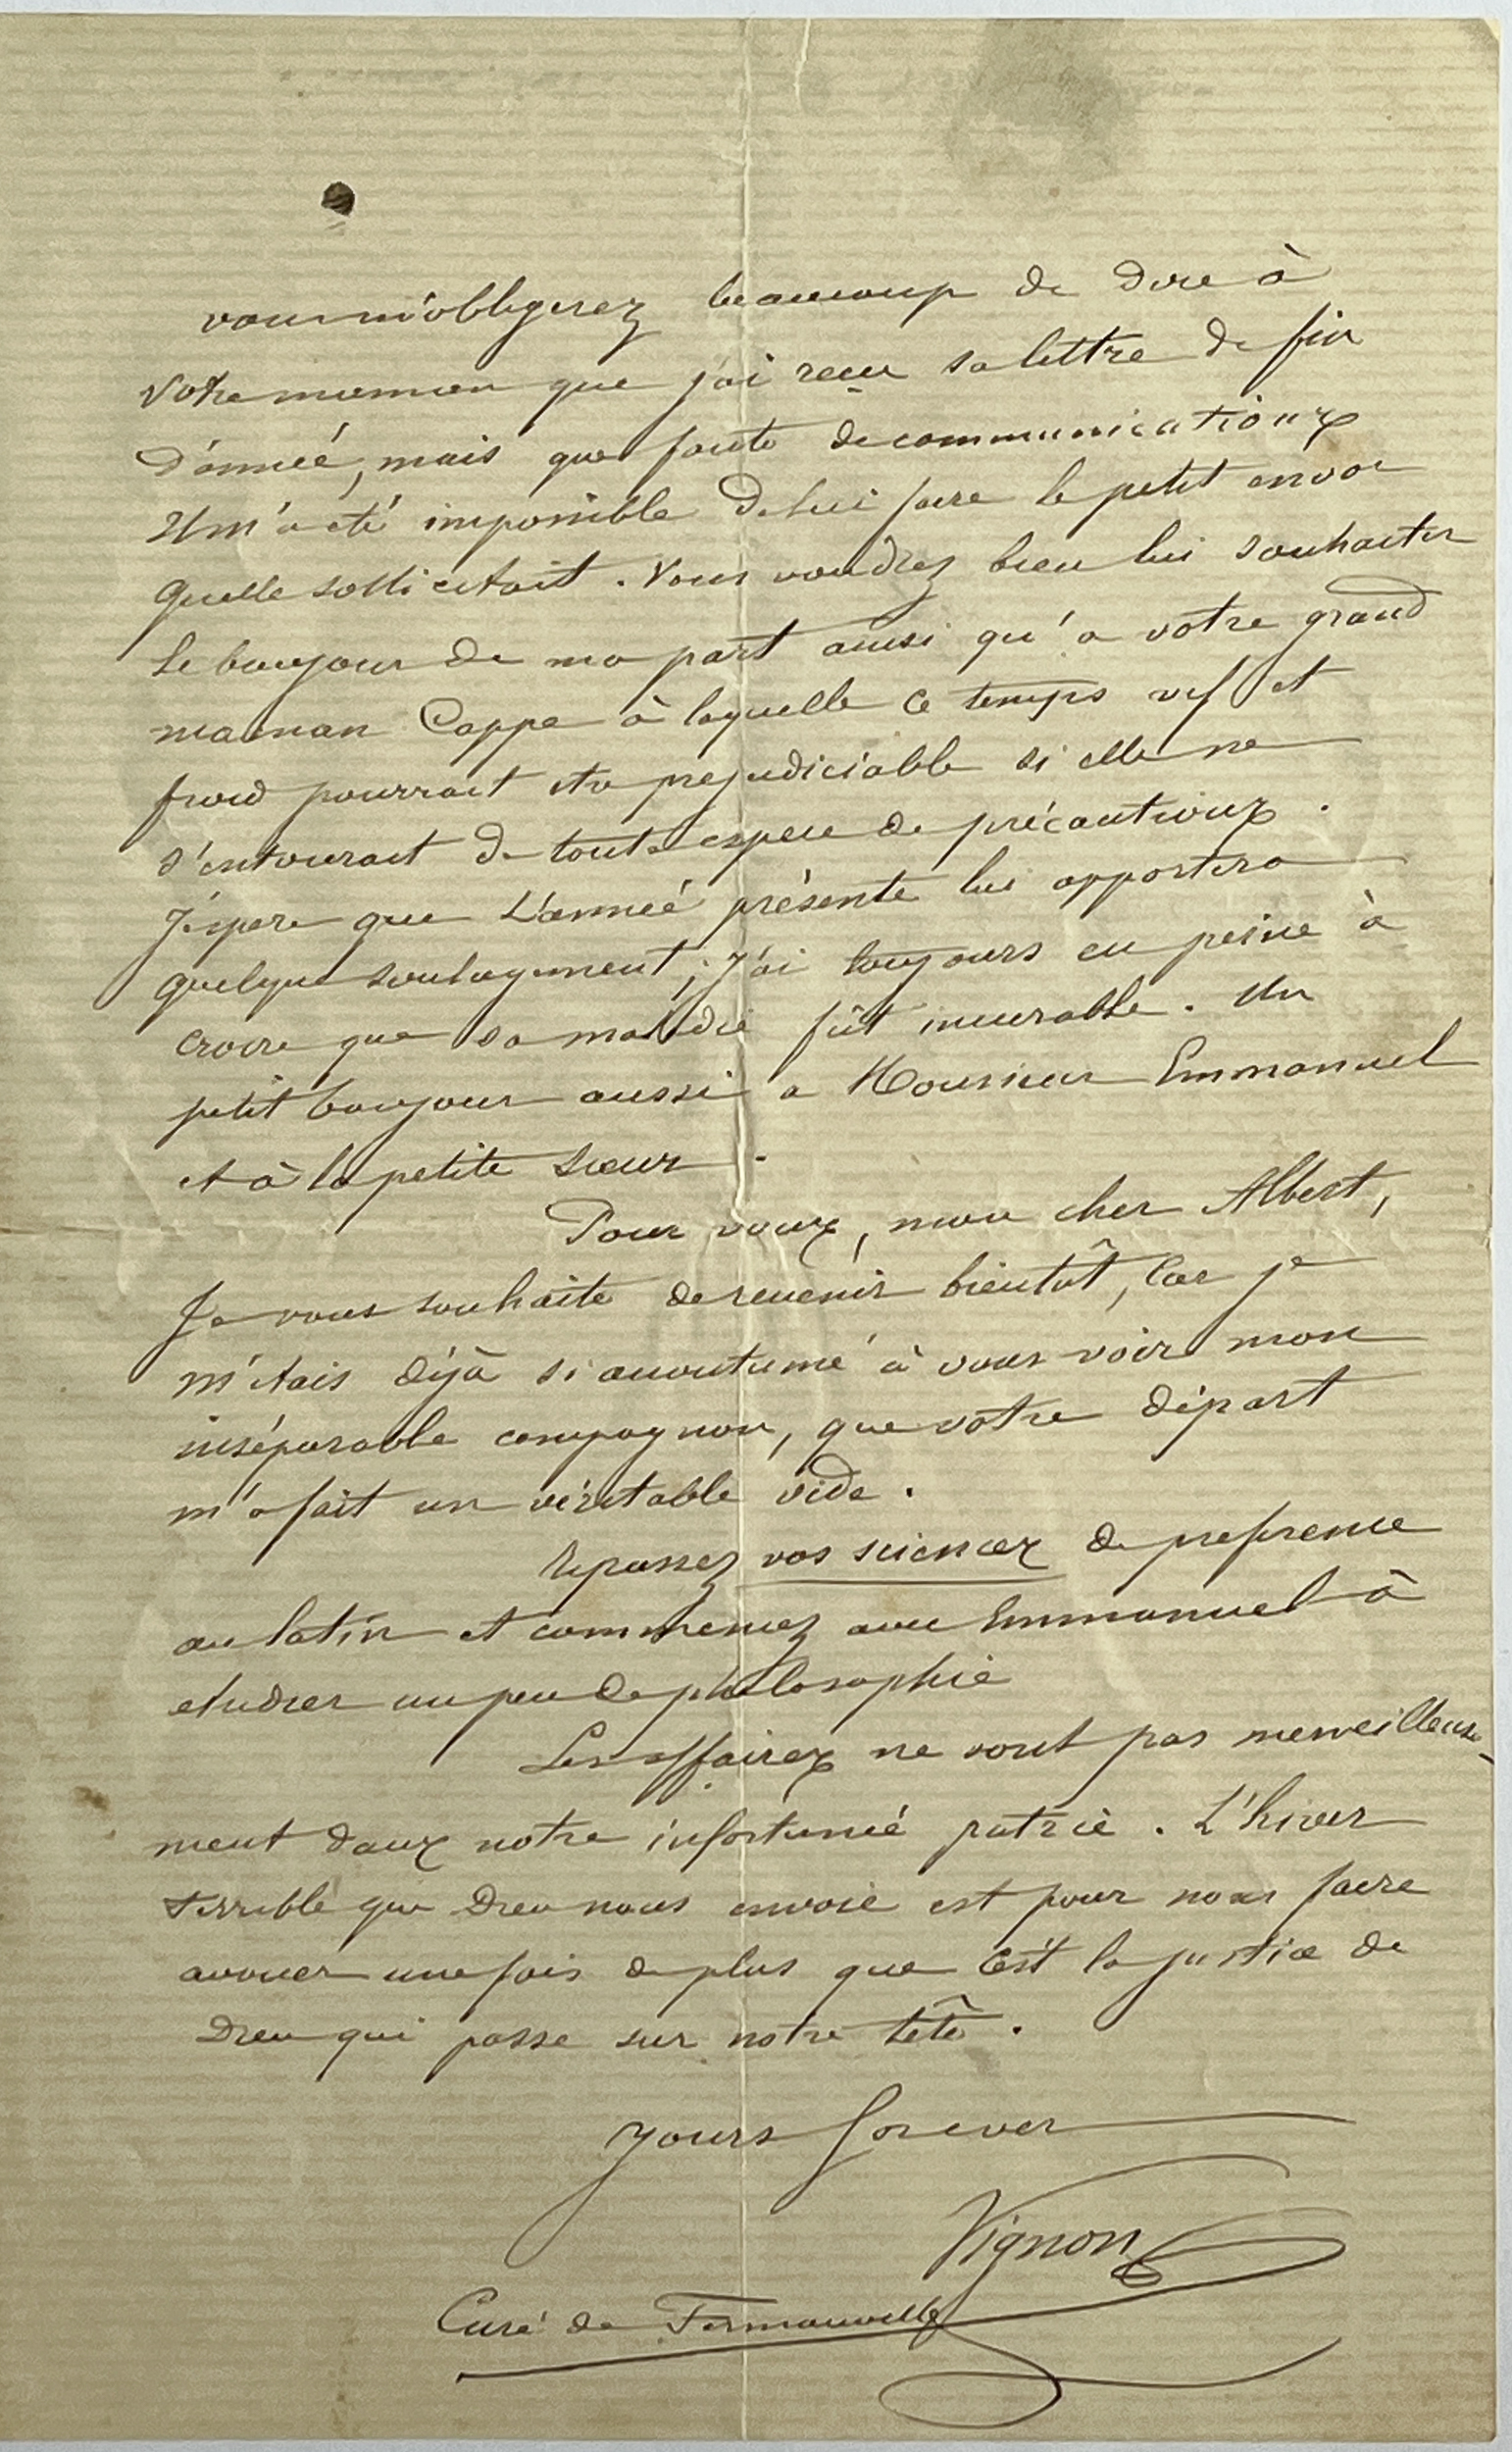 vous m'obligerez beaucoup de dire à
votre maman que j'ai reçu sa lettre de fin
d'année, mais que faute de communications
Il m'a été impossible de lui faire le petit envoi
quelle sollicitait. Vous voudrez bien lui souhaiter
le bonjour de ma part ainsi qu'a votre grand
maman Cappe à laquelle ce temps vif et
froid pourrait être prejudiciable si elle ne
s'entourait de toute espece de précautions.
J'espere que L'année présente lui apportera
quelque soulagement; j'ai toujours eu peine à
croire que sa maladie fût incurable. Un
petit bonjour aussi a Monsieur Emmanuel
et à la petite Sœur.
Pour vous, mon cher Albert,
Je vous souhaite de revenir bientôt, Car je
m'étais déjà si accoutumé à vous voir mon
inséparable compagnon, que votre départ
m'a fait un véritable vide.
Repassez vos sciences de preference
au latin et commencez avec Emmanuel à
etudier un peu de philosophie
Les affaires ne vont pas merveilleuse-
ment dans notre infortunée patrie. L'hiver
terrible que Dieu nous envoie est pour nous faire
avouer une fois de plus que c'est la justice de
Dieu qui passe sur notre tête.
Yours forever
Vignon
Curé de Fermanville